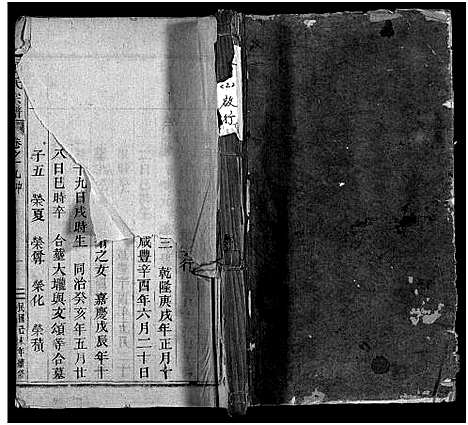 (2)
啟行
三 乾隆庚戌年正月十
咸豐辛酉年六月二十日
之女 嘉慶戊辰年十
十九日戌時生 同治癸亥年五月廿
八日巳時卒 合葬大壠與文頌寺合墓
子五 榮夏 榮賀 榮化 榮積
氏宗譜
卷之
二